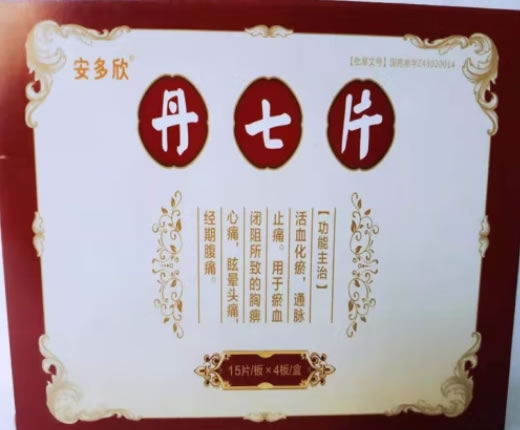 安多欣®
【批准文号】国药准字Z49020014
丹七片
【功能主治】
活血化瘀，通脉
止痛。用于瘀血
闭阻所致的胸痹
心痛，眩晕头痛，
经期腹痛。
15片/板×4板/盒